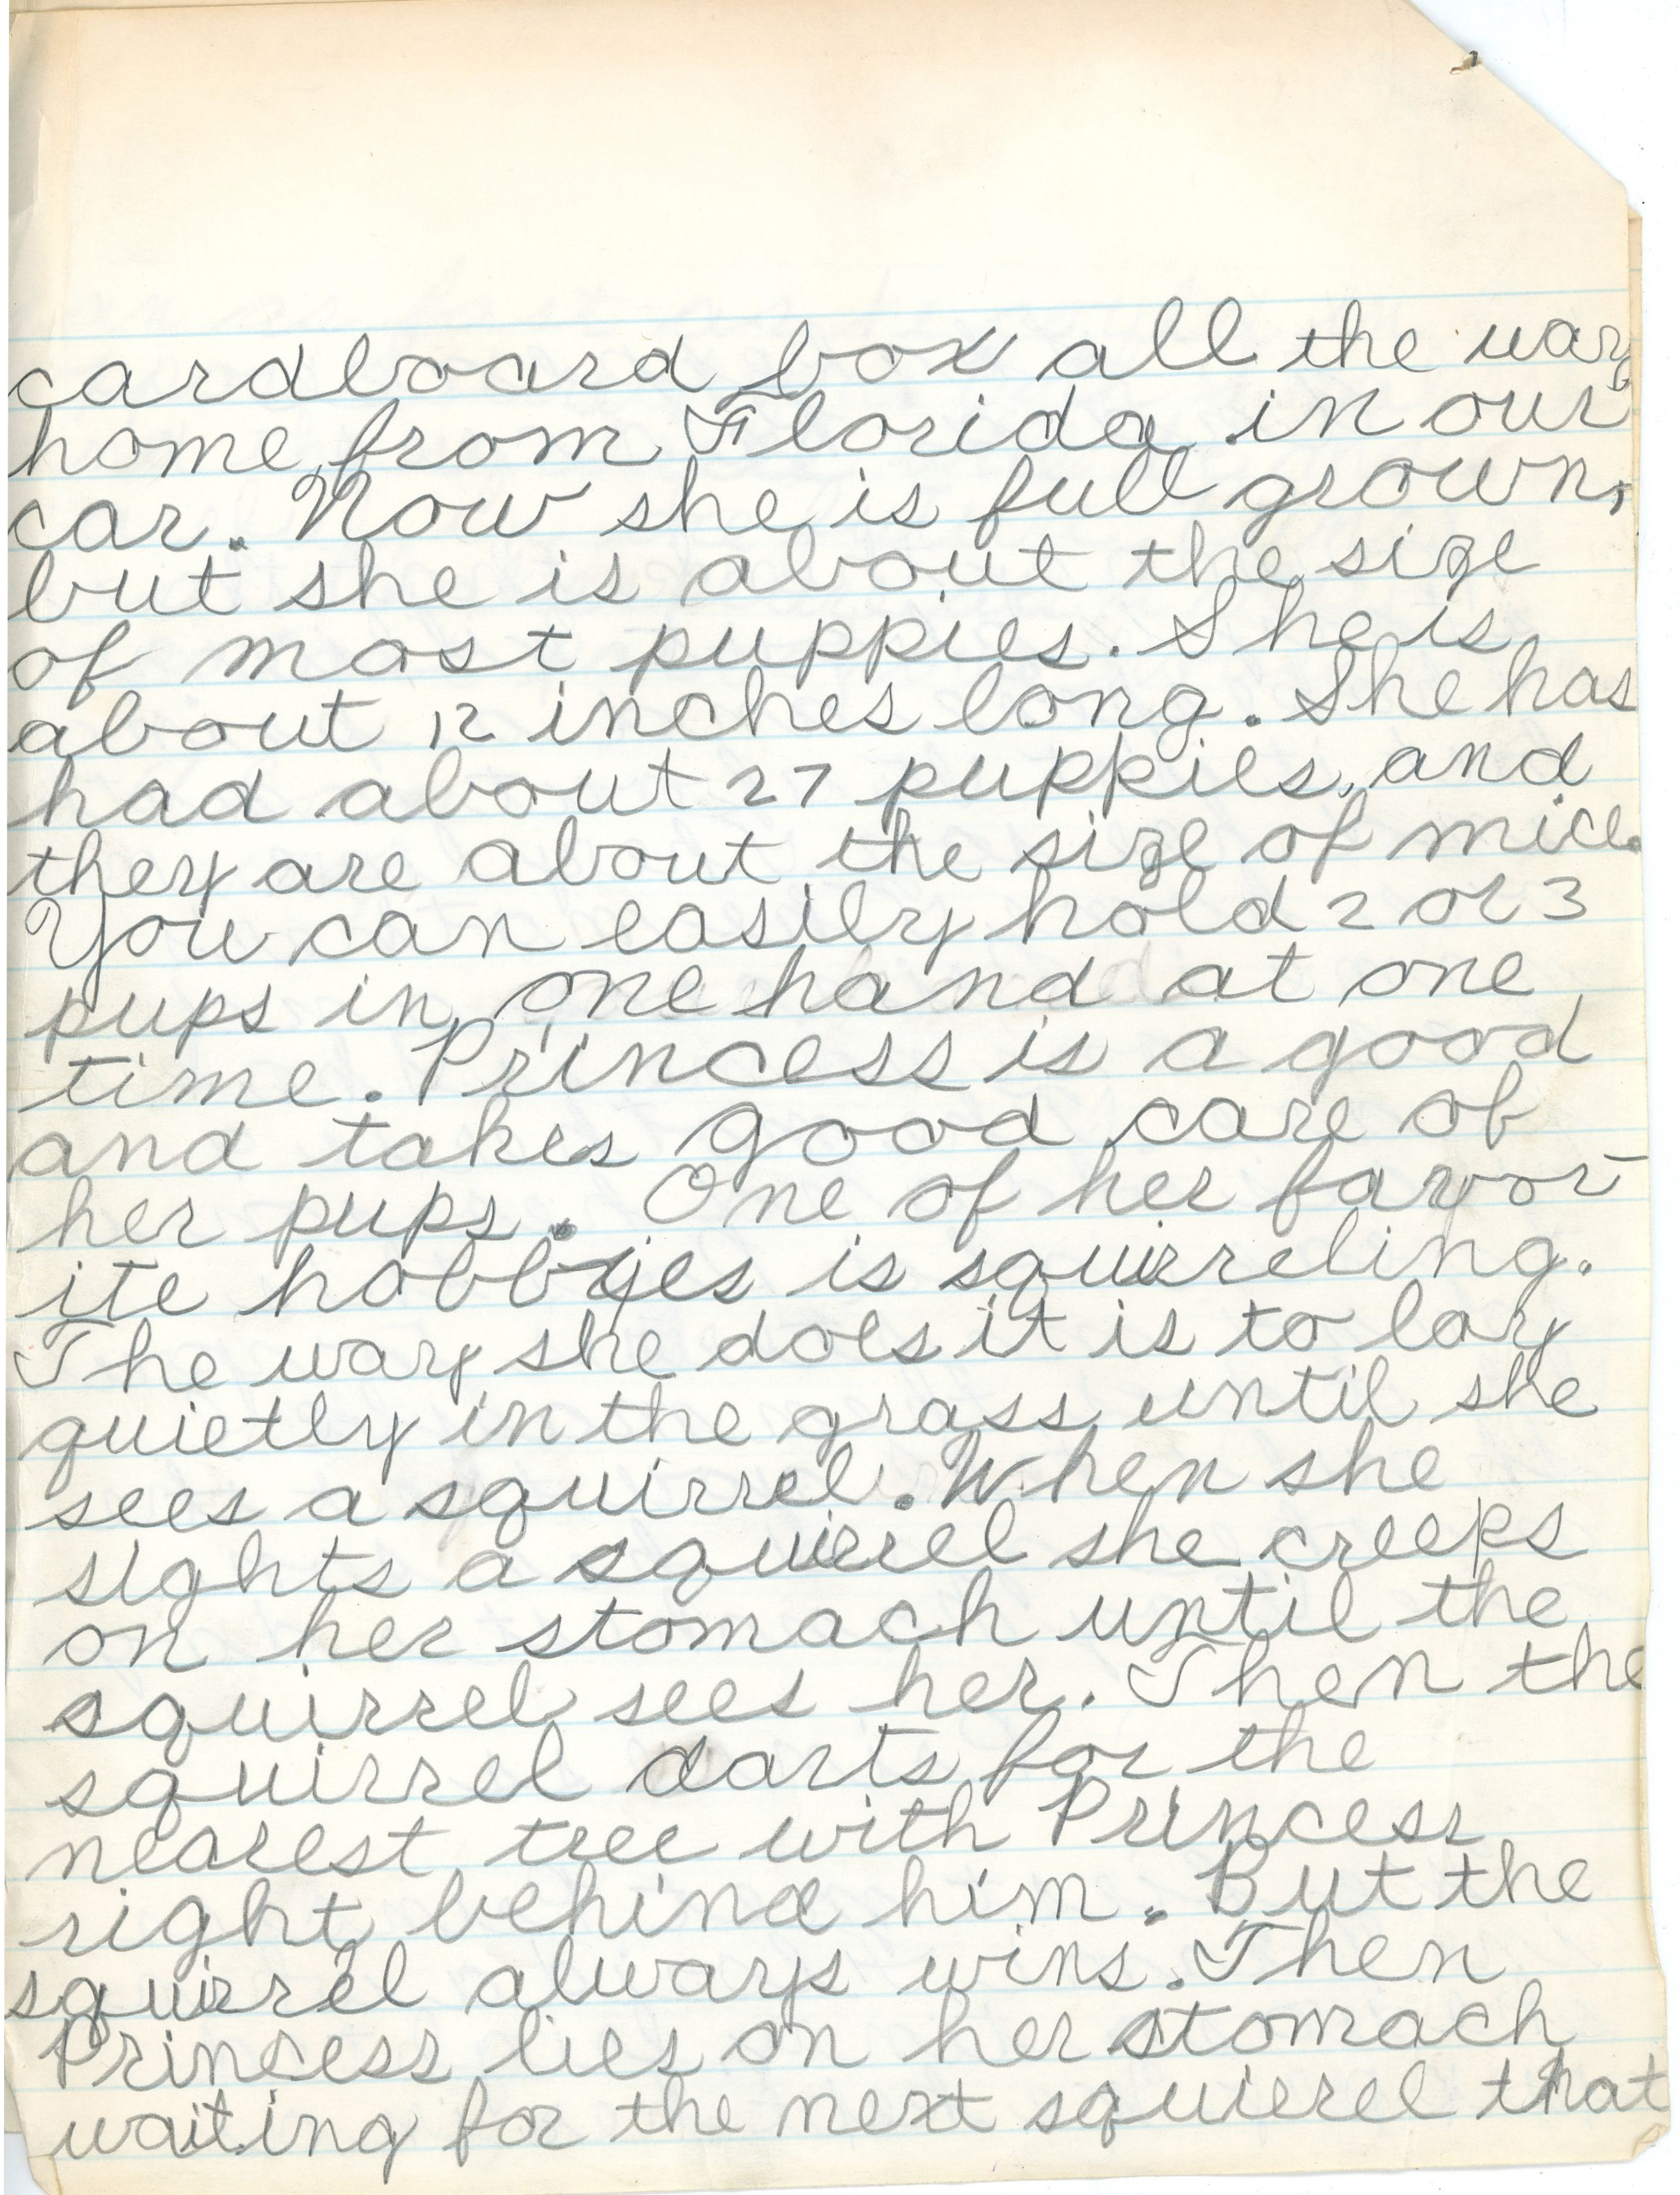 cardboard box all the way
home from Florida in our
car. Now she is full grown,
but she is about the size
of most puppies. She is
about 12 inches long. She has
had about 27 puppies, and
they are about the size of mice.
You can easily hold 2 or 3
pups in one hand at one
time. Princess is a good
and takes good care of
her pups. One of her favor-
ite hobbyies is squirreling.
The way she does it is to lay
quietly in the grass until she
sees a squirrel. When she
sights a squirrel she creeps
on her stomach until the
squirrel sees her. Then the
squirrel darts for the
nearest tree with Princess
right behind him. But the
squirrel always wins. Then
Princess lies on her stomach
waiting for the next squirrel that